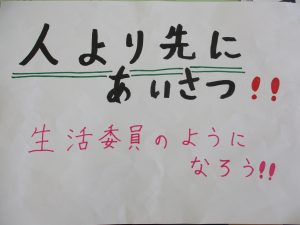 人より先に
あいさつ!!
生活委員のように
なろう!!